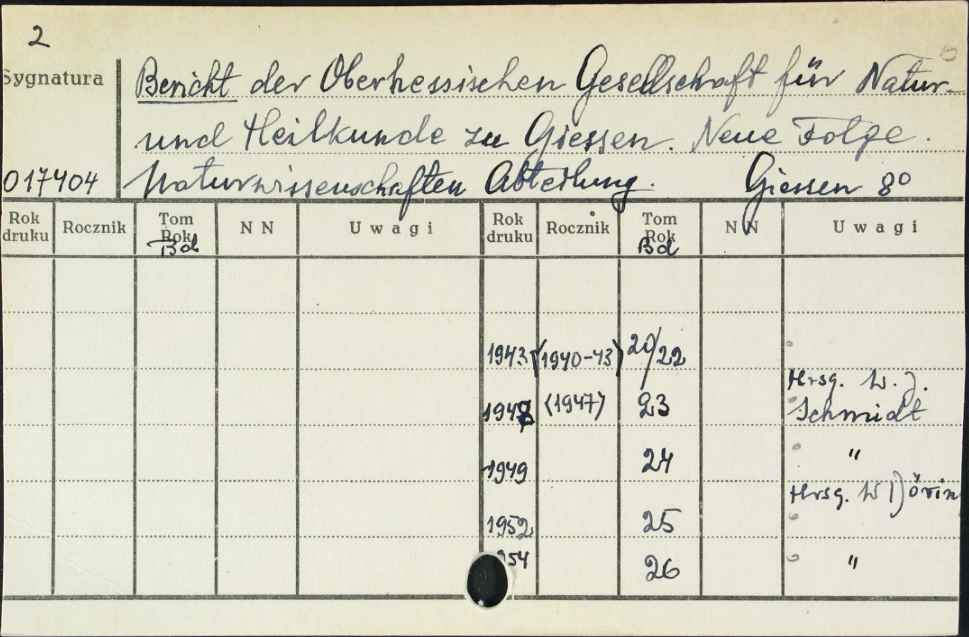 2
Sygnatura
Bericht der Oberhessischen Gesellschaft für Natur-
und Heilkunde zu Giessen. Neue Folge.
017404 Naturwissenschaften Abteilung. Giessen 8°
Rok druku Rocznik Tom Rok Bd N N Uwagi Rok druku Rocznik Tom Rok Bd N N Uwagi
1943 (1940-43) 20/22
1948 (1947) 23 Hrsg. W. J. Schmidt
1949 24 "
1952 25 Hrsg. W Dörin
54 26 "